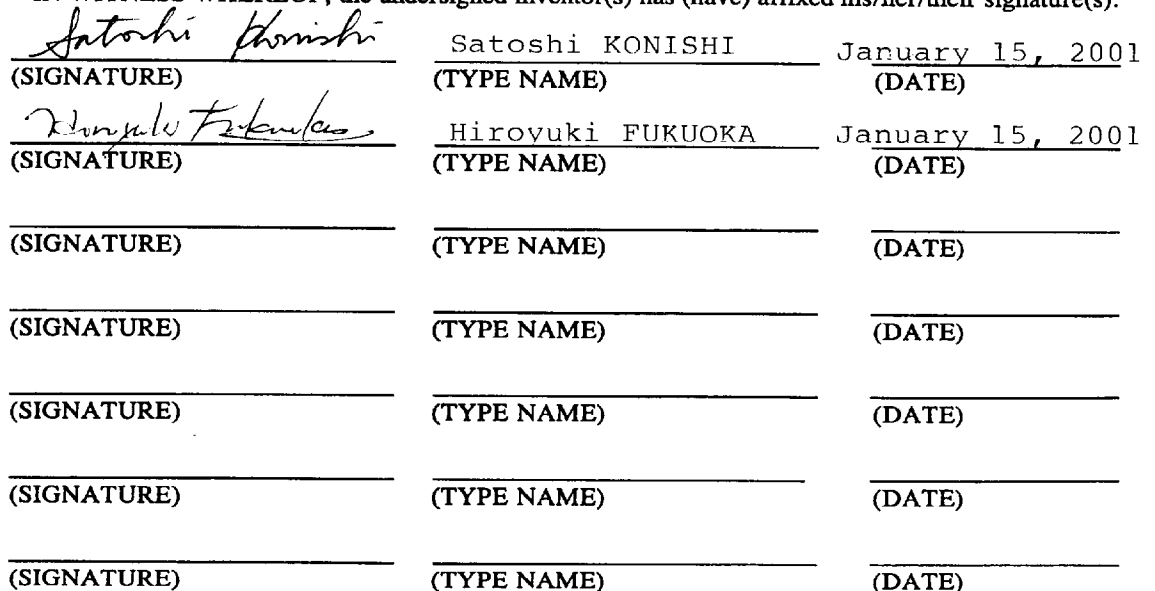 IN WITNESS WHEREOF, the undersigned inventor(s) has (have) affixed his/her/their signature(s).
Satoshi Konishi Satoshi KONISHI January 15, 2001
(SIGNATURE) (TYPE NAME) (DATE)
Hiroyuki Fukuoka Hiroyuki FUKUOKA January 15, 2001
(SIGNATURE) (TYPE NAME) (DATE)
(SIGNATURE) (TYPE NAME) (DATE)
(SIGNATURE) (TYPE NAME) (DATE)
(SIGNATURE) (TYPE NAME) (DATE)
(SIGNATURE) (TYPE NAME) (DATE)
(SIGNATURE) (TYPE NAME) (DATE)